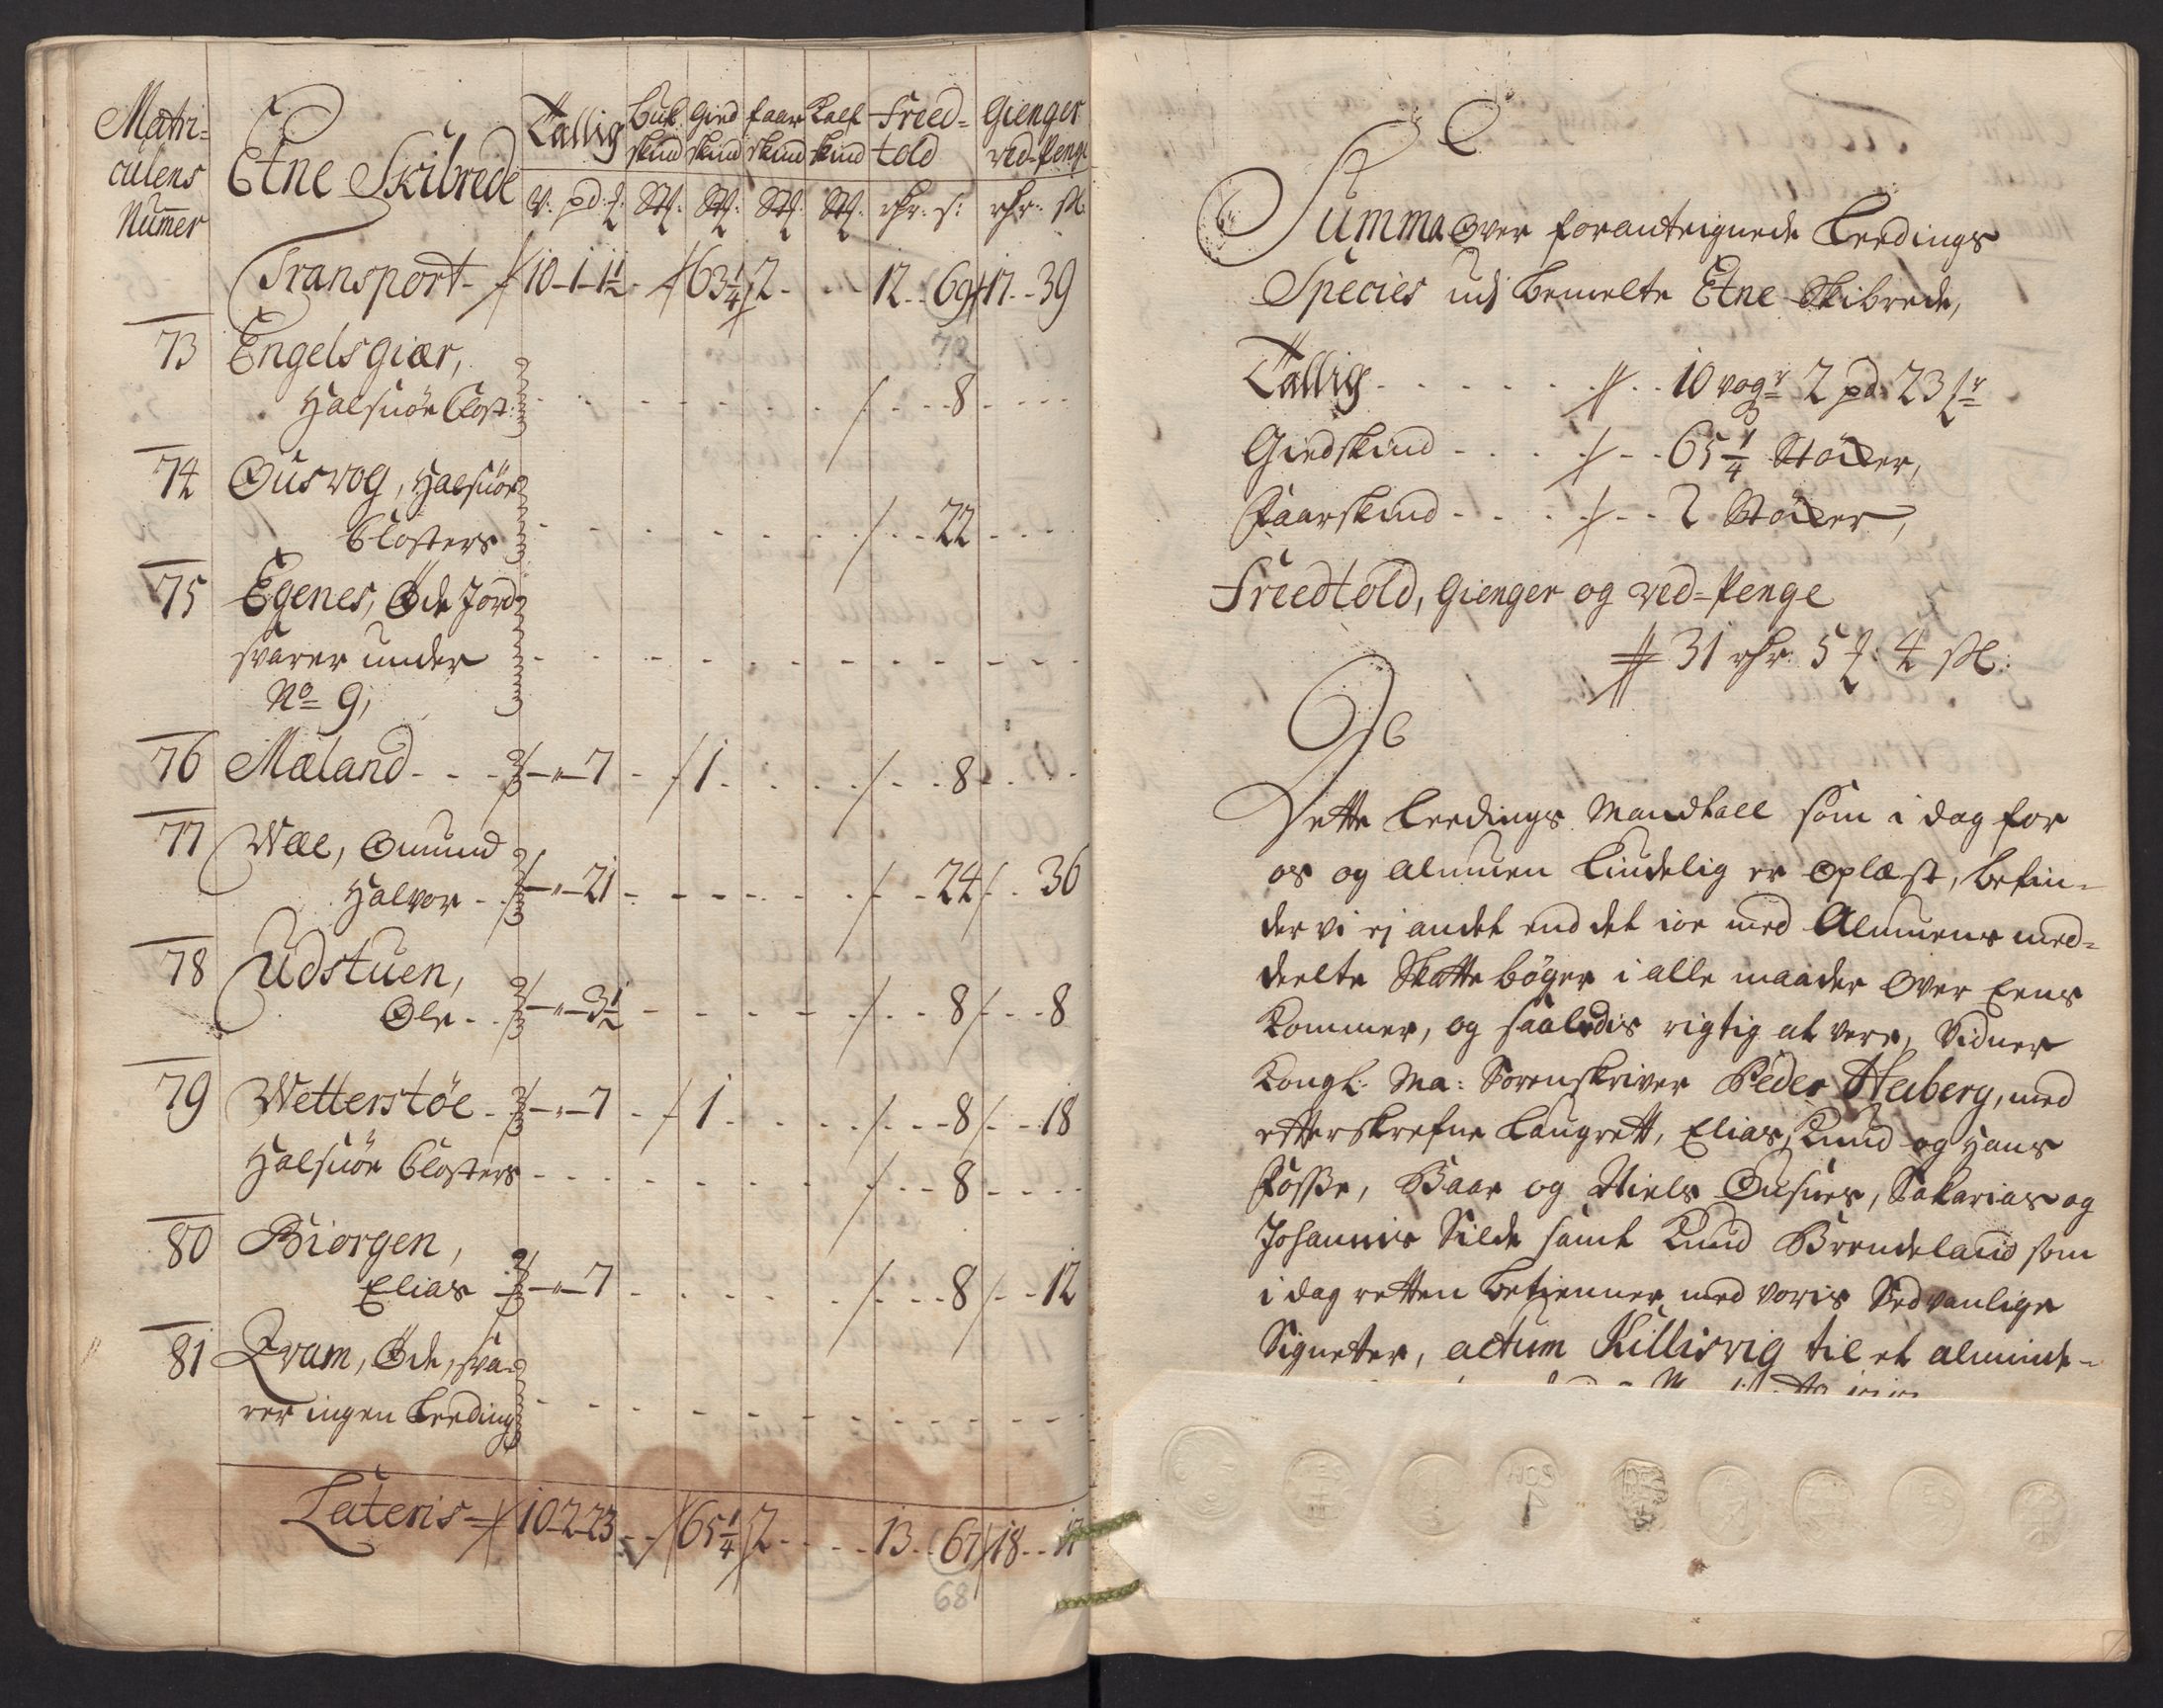 Matri=
culens
Numer
Etne Skibrede
Tallig
Buk
skind
Gied
skind
faar
skind
Kalf
skind
Freed=
told
Gienger
ved-Penge
V: pd: Stk: Stk: Stk: Stk: rdr: s: rdr: sl
Transport 10-1-1½ 63¼ 2 12 69 17 39
70
73 Engelsgiær,
Halsnöe Clost: 8
74 Ousvog, Halsnöe
Closters 22
75 Egenes, Öde Jord
svarer under
No 9,
76 Mæland 7 1 8
77 Wæe, Omund
Halvor 21 24 36
78 Udstuen,
Ole 3½ 8 8
79 Wetterstöe 7 1 8 18
Halsnöe Closters 8
80 Biorgen,
Elias 7 8 12
81 Qvam, Öde, sva-
rer ingen Leeding
Lateris 10-2-23 65¼ 2 13 67 18 17
68
Summa Over foranteignede Leedings
Species udj bemelte Etne Skibrede,
Tallig 10 vogr 2 pd 23
Giedskind 65¼ Stöcker,
Faarskind 2 Stöcker,
Freedtold, Gienger og ved=Penge
31 rdr 5 4 sl:
Dette Leedings Mandtall som i dag for
os og Almuen tÿdelig er Oplæst, befin-
der vi ej andet end det jo med Almuens med-
deelte Skatte bøger i alle maader Over Eens
Kommer, og saaledis rigtig at vere, Vidner
Kongl: Ma: Sorenskriver Peder Heiberg, med
etterskrefne Laugrett, Elias, Knud og Hans
Fosse, Baar og Niels Ousnes, Sakarias og
Johannis Silde samt Knud Brendeland som
i dag retten betienner med voris Sedvanlige
Signeter, actum Killisvig til et alminde-